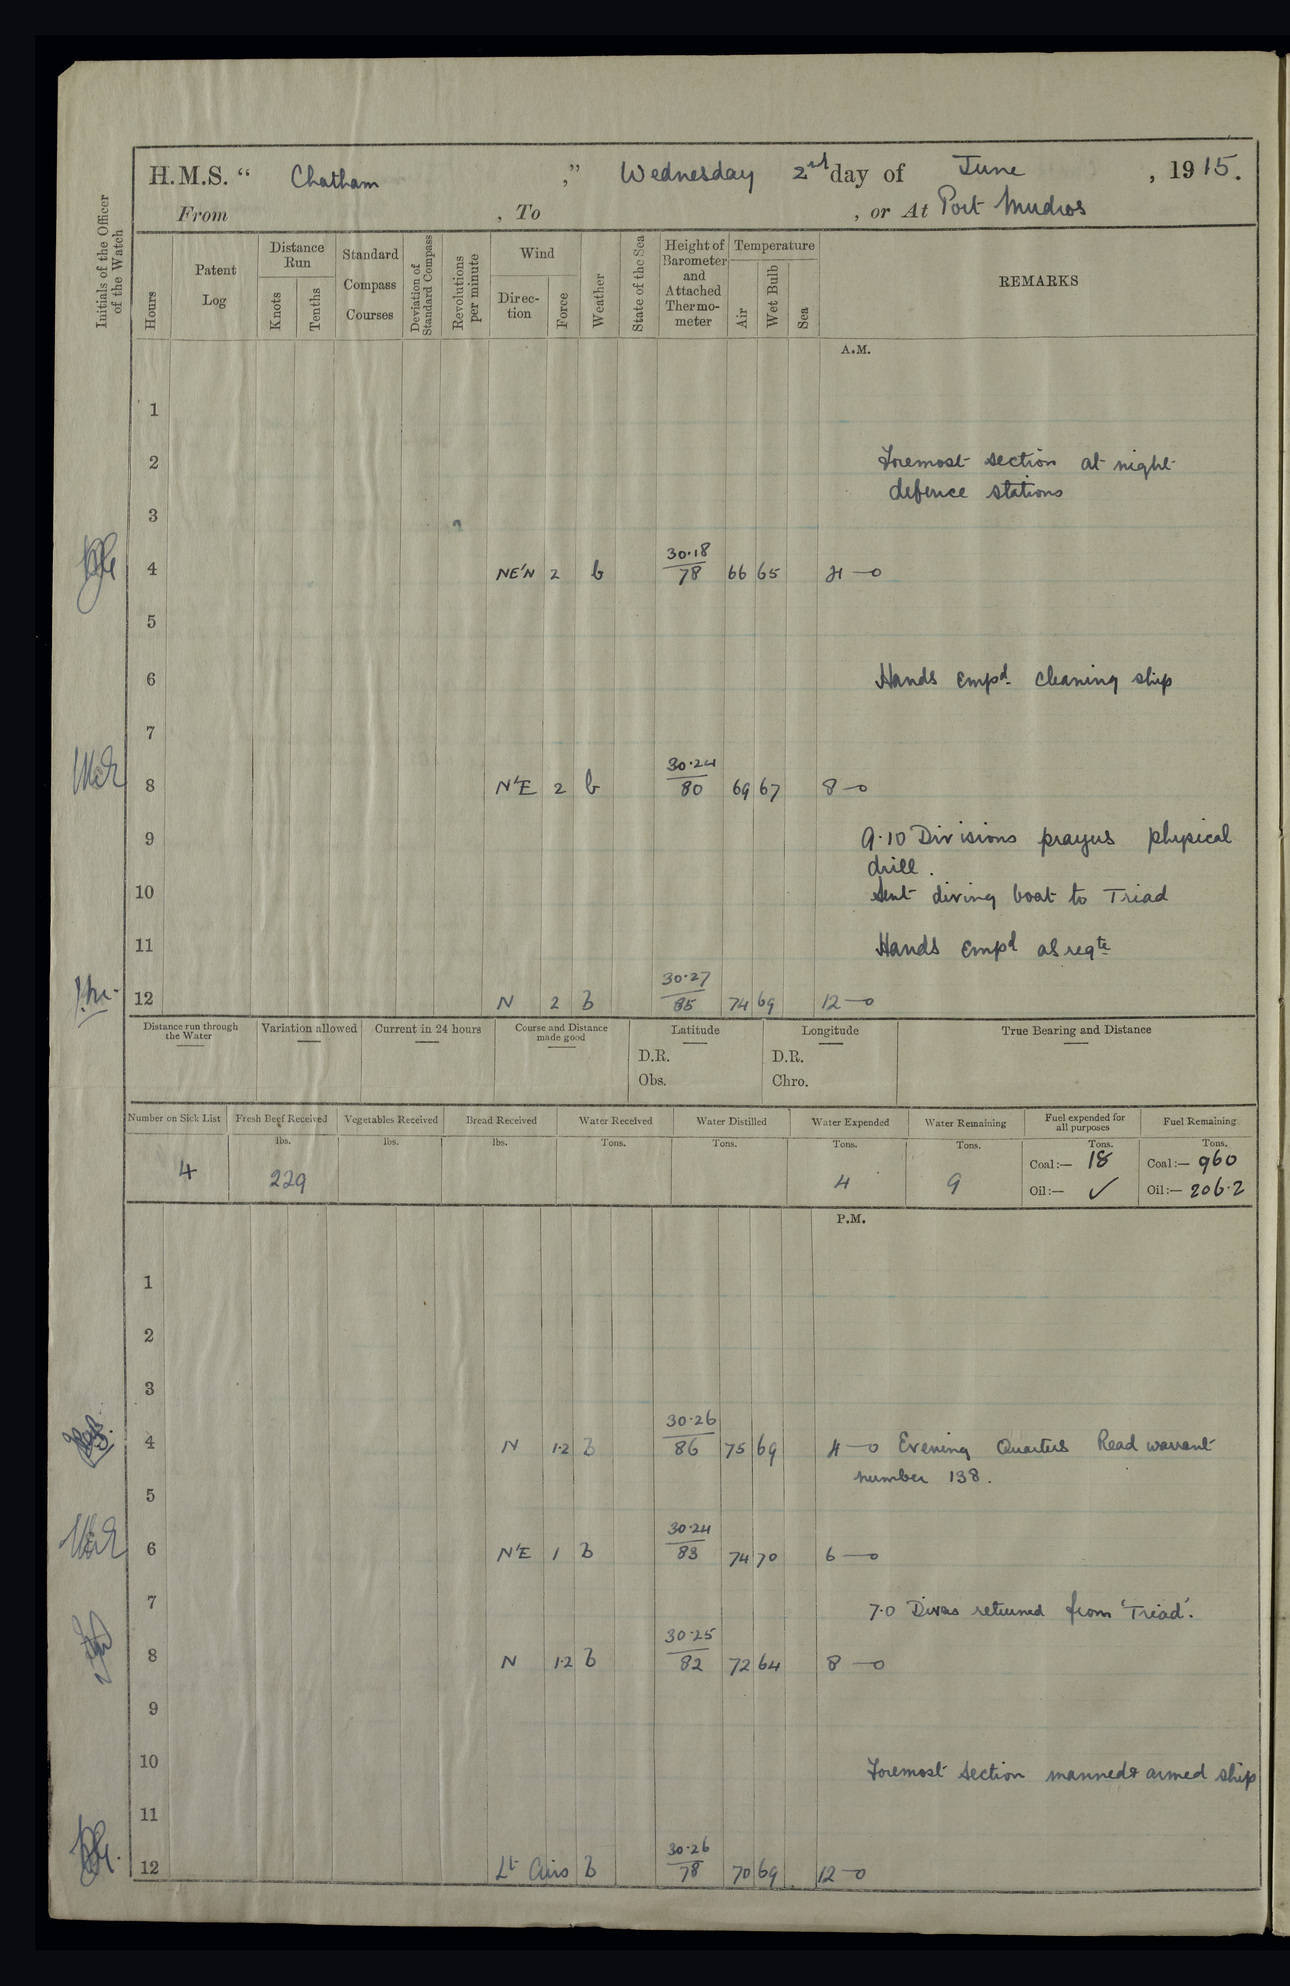 H.M.S. “ Chatham ,” Wednesday 2nd day of June , 1915.
From , To , or At Port Mudros
Initials of the Officer of the Watch
Hours
Patent Log
Distance Run
Knots
Tenths
Standard Compass Courses
Deviation of Standard Compass
Revolutions per minute
Wind
Direc-tion
Force
Weather
State of the Sea
Height of Barometer and Attached Thermo-meter
Temperature
Air
Wet Bulb
Sea
REMARKS
A.M.
1
2 Foremost section at night
defence stations
3
4 NE'N 2 b 30.18/78 66 65 4—0
5
6 Hands empd. cleaning ship
7
8 N'E 2 b 30.24/80 69 67 8—0
9 9.10 Divisions prayers physical
drill.
10 Sent diving boat to Triad
11 Hands empd as reqte
12 N 2 b 30.27/85 74 69 12—0
Distance run through the Water
Variation allowed
Current in 24 hours
Course and Distance made good
Latitude
Longitude
True Bearing and Distance
D.R. D.R.
Obs. Chro.
Number on Sick List
Fresh Beef Received
Vegetables Received
Bread Received
Water Received
Water Distilled
Water Expended
Water Remaining
Fuel expended for all purposes
Fuel Remaining
lbs. lbs. lbs. Tons. Tons. Tons. Tons. Tons. Tons.
4 229 4 9 Coal:— 18 Coal:— 960
Oil:— ✓ Oil:— 206.2
P.M.
1
2
3
4 N 1.2 b 30.26/86 75 69 4—0 Evening Quarters Read warrant
number 138.
5
6 N'E 1 b 30.24/83 74 70 6—0
7 7.0 Divers returned from 'Triad'.
8 N 1.2 b 30.25/82 72 64 8—0
9
10 Foremost section manned & armed ship
11
12 Lt Airs b 30.26/78 70 69 12—0